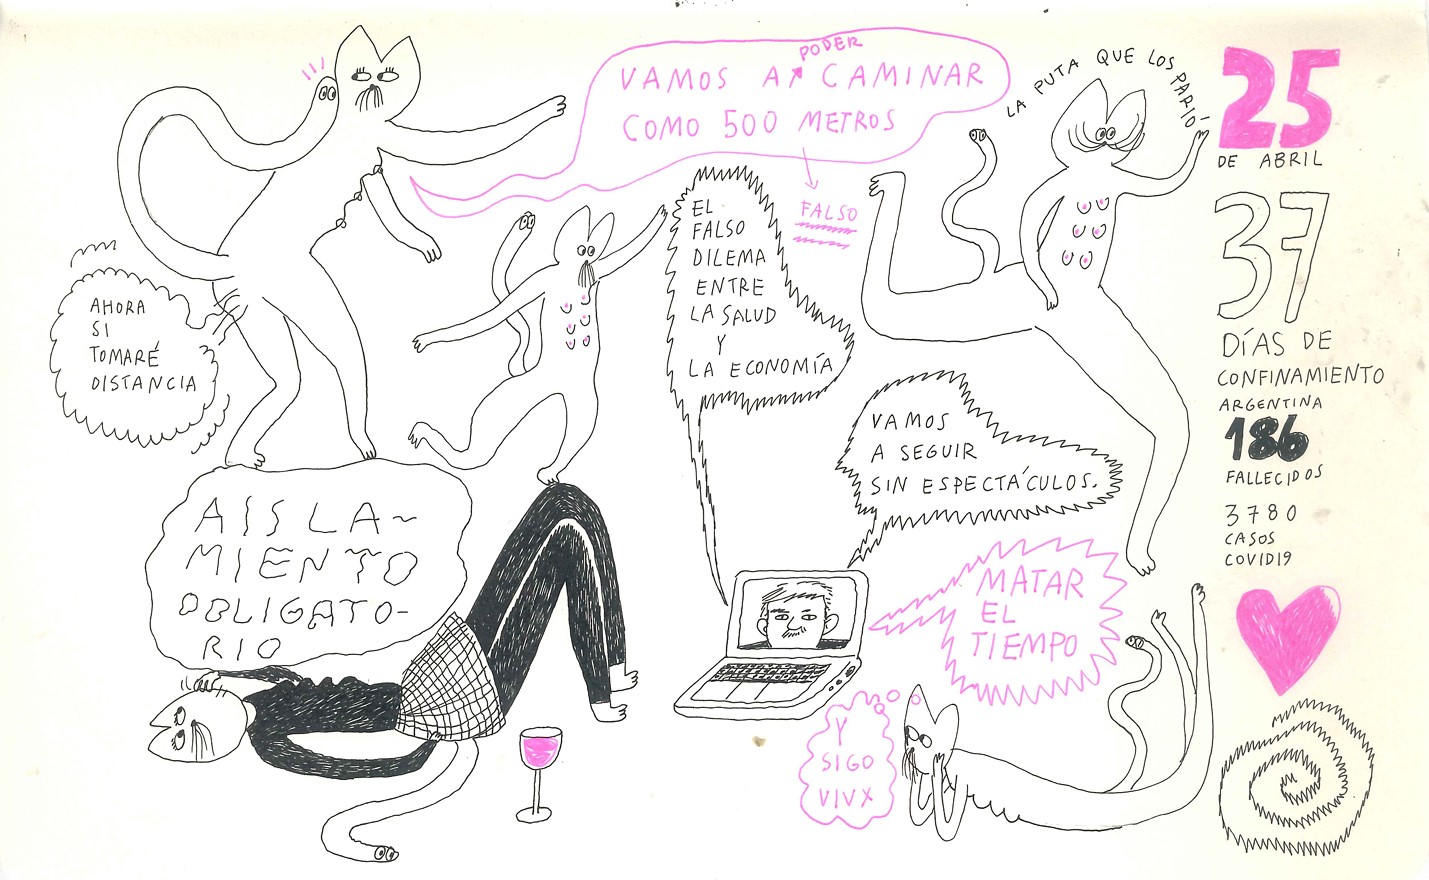 VAMOS A PODER CAMINAR
COMO 500 METROS
FALSO
LA PUTA QUE LOS PARIÓ
25
DE ABRIL
37
DÍAS DE
CONFINAMIENTO
ARGENTINA
186
FALLECIDOS
3780
CASOS
COVID19
AHORA
SI
TOMARÉ
DISTANCIA
EL
FALSO
DILEMA
ENTRE
LA SALUD
Y
LA ECONOMÍA
VAMOS
A SEGUIR
SIN ESPECTÁCULOS.
AISLA-
MIENTO
OBLIGATO-
RIO
MATAR
EL
TIEMPO
Y
SIGO
VIVX